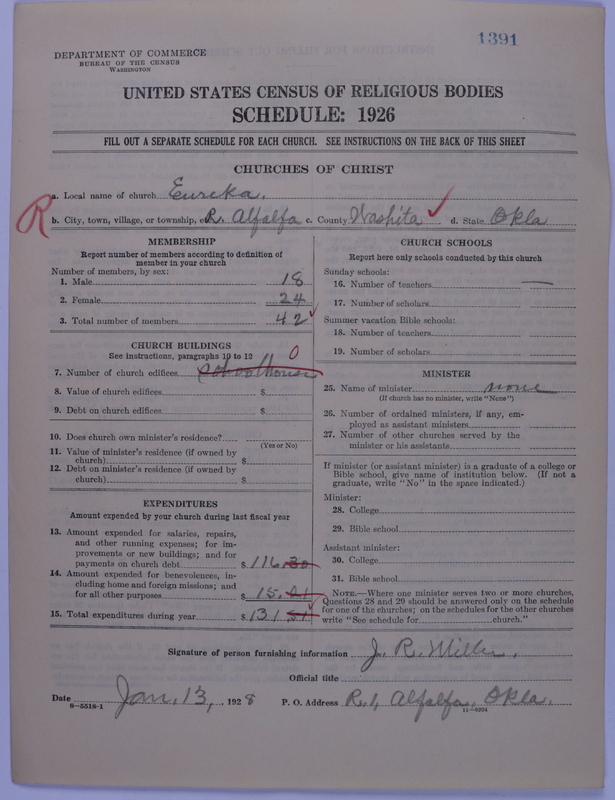 1391
DEPARTMENT OF COMMERCE
BUREAU OF THE CENSUS
WASHINGTON
UNITED STATES CENSUS OF RELIGIOUS BODIES
SCHEDULE: 1926
FILL OUT A SEPARATE SCHEDULE FOR EACH CHURCH. SEE INSTRUCTIONS ON THE BACK OF THIS SHEET
CHURCHES OF CHRIST
a. Local name of church Eureka.
R b. City, town, village, or township, R. Alfalfa c. County Washita ✓ d. State Okla
MEMBERSHIP
Report number of members according to definition of
member in your church
Number of members, by sex:
1. Male 18
2. Female 24
3. Total number of members 42 ✓
CHURCH BUILDINGS
See instructions, paragraphs 10 to 12
7. Number of church edifices schoolhouse 0
8. Value of church edifices $
9. Debt on church edifices $
10. Does church own minister's residence?
(Yes or No)
11. Value of minister's residence (if owned by
church) $
12. Debt on minister's residence (if owned by
church) $
EXPENDITURES
Amount expended by your church during last fiscal year
13. Amount expended for salaries, repairs,
and other running expenses; for im-
provements or new buildings; and for
payments on church debt $ 116.30
14. Amount expended for benevolences, in-
cluding home and foreign missions; and
for all other purposes $ 15.21
15. Total expenditures during year $ 131.51 ✓
CHURCH SCHOOLS
Report here only schools conducted by this church
Sunday schools:
16. Number of teachers —
17. Number of scholars
Summer vacation Bible schools:
18. Number of teachers
19. Number of scholars
MINISTER
25. Name of minister none
(If church has no minister, write "None")
26. Number of ordained ministers, if any, em-
ployed as assistant ministers
27. Number of other churches served by the
minister or his assistants
If minister (or assistant minister) is a graduate of a college or
Bible school, give name of institution below. (If not a
graduate, write "No" in the space indicated.)
Minister:
28. College
29. Bible school
Assistant minister:
30. College
31. Bible school
NOTE.—Where one minister serves two or more churches,
Questions 28 and 29 should be answered only on the schedule
for one of the churches; on the schedules for the other churches
write "See schedule for church."
Signature of person furnishing information J. R. Miller.
Official title
Date Jan. 13, 1928 P. O. Address R. 1, Alfalfa, Okla.
8-5518-1
11-9204